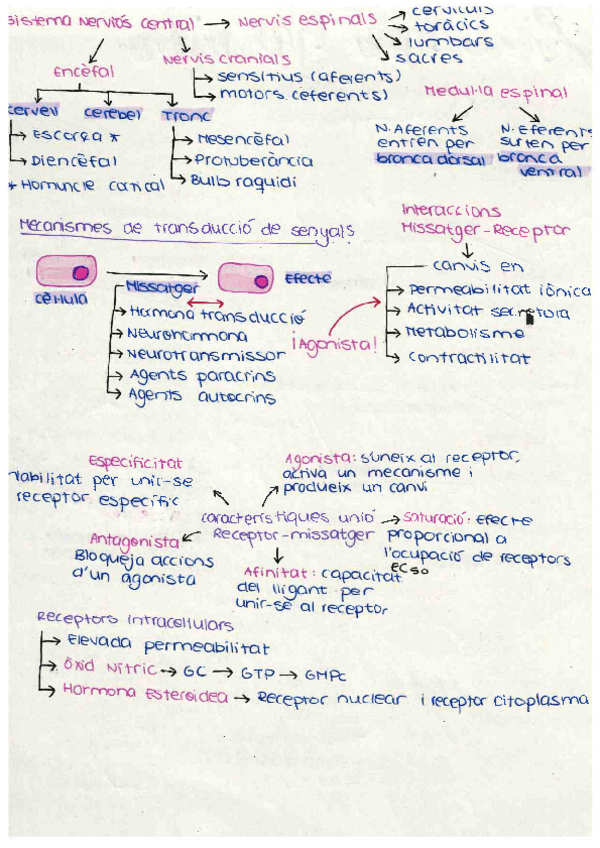 Sistema Nerviós central → Nervis espinals
cervicals
toràcics
lumbars
sacres
Encèfal
Nervis cranials
sensitius (aferents)
motors (eferents)
Medul·la espinal
cervell
cerebel
Tronc
Escorça *
Diencèfal
* Homuncle cortical
Mesencèfal
Protuberància
Bulb raquidi
N. Aferents
entren per
branca dorsal
N. Eferents
surten per
branca
ventral
Mecanismes de transducció de senyals
Interaccions
Missatger-Receptor
cèl·lula
Missatger
Efecte
Hormona transducció
Neurohormona
Neurotransmissor
Agents paracrins
Agents autocrins
¡Agonista!
canvis en
Permeabilitat iònica
Activitat secretora
Metabolisme
contractilitat
Especificitat
habilitat per unir-se
receptor específic
Agonista: s'uneix al receptor,
activa un mecanisme i
produeix un canvi
característiques unió
Receptor-missatger
Saturació: Efecte
proporcional a
l'ocupació de receptors
EC50
Antagonista
Bloqueja accions
d'un agonista
Afinitat: capacitat
del lligant per
unir-se al receptor
Receptors intracel·lulars
Elevada permeabilitat
Òxid Nítric → GC → GTP → GMPc
Hormona Esteroidea → Receptor nuclear i receptor citoplasma